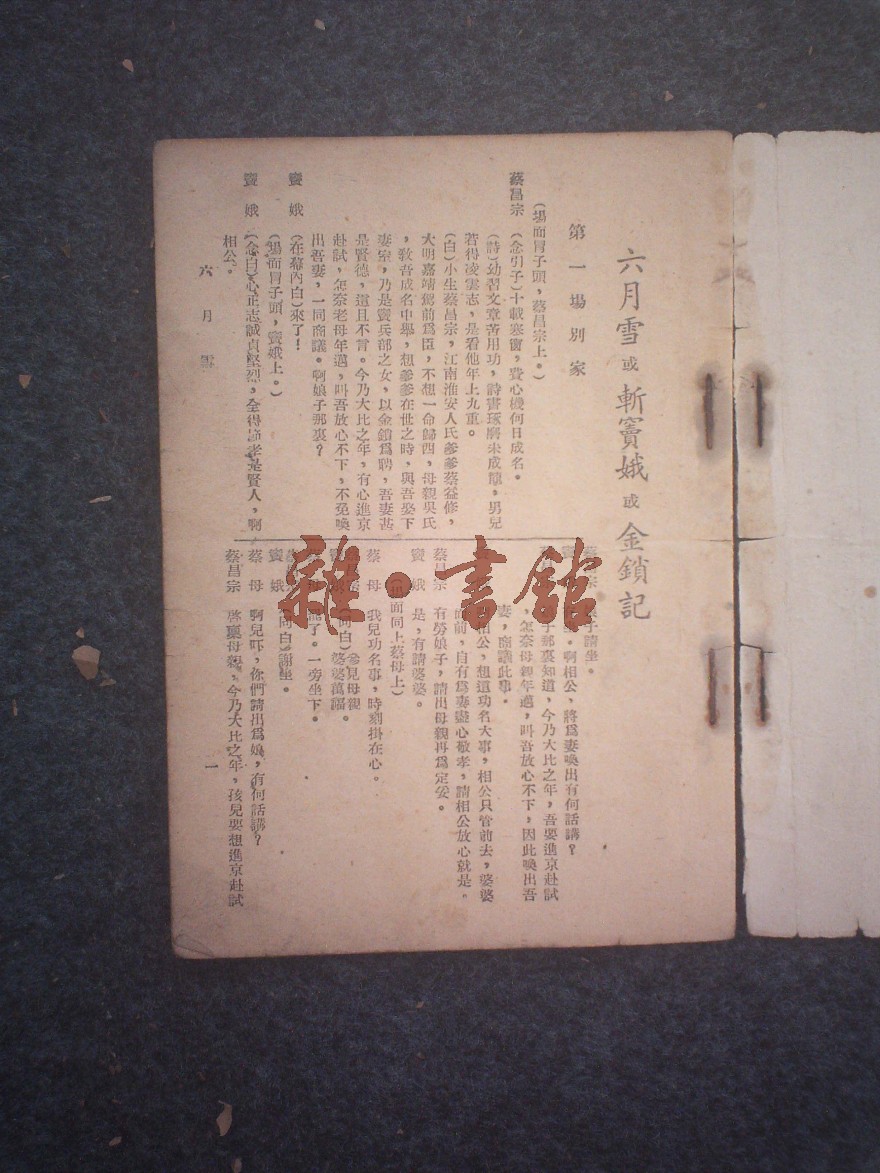 六月雪或斬竇娥或金鎖記
第一場別家
(場面冒子頭,蔡昌宗上。)
蔡昌宗 (念引子)十載寒窗,費心機何日成名。
(詩)幼習文章苦用功,詩書琢磨未成龍,男兒
若得凌雲志,是看他年上九重。
(白)小生蔡昌宗,江南淮安人氏爹爹蔡益修,
大明嘉靖駕前爲臣,不想一命歸西,母親吳氏
,教吾成名中舉,想爹爹在世之時,與吾娶下
妻室,乃是竇兵部之女,以金鎖爲聘,吾妻甚
是賢德,這且不言。今乃大比之年,有心進京
赴試,怎奈老母年邁,叫吾放心不下,不免喚
出吾妻,一同商議。啊娘子那裏?
竇娥 (在幕內白)來了!
(場面冒子頭,竇娥上。)
竇娥 (念白)心正志誠貞堅烈,全得孝是賢人,啊
相公。
蔡昌宗 子請坐。
。啊相公,將爲妻喚出有何話講?
子那裏知道,今乃大比之年,吾要進京赴試
,怎奈母親年邁,叫吾放心不下,因此喚出吾
妻,商議此事。
相公,想這功名大事,相公只管前去,婆婆
面前,自有爲妻盡心敬孝,請相公放心就是。
蔡昌宗 有勞娘子,請出母親再爲定妥。
竇娥 是,有請婆婆。
面同上蔡母上)
蔡母 我兒功名事,時刻掛在心。
參見母親
竇娥 (同白)婆婆萬福。
了。一旁坐下。
竇娥 (同白)謝坐。
蔡母 啊兒吓,你們請出爲娘,有何話講?
蔡昌宗 啓稟母親,今乃大比之年,孩兒要想進京赴試
六月雪
一
雜·書館